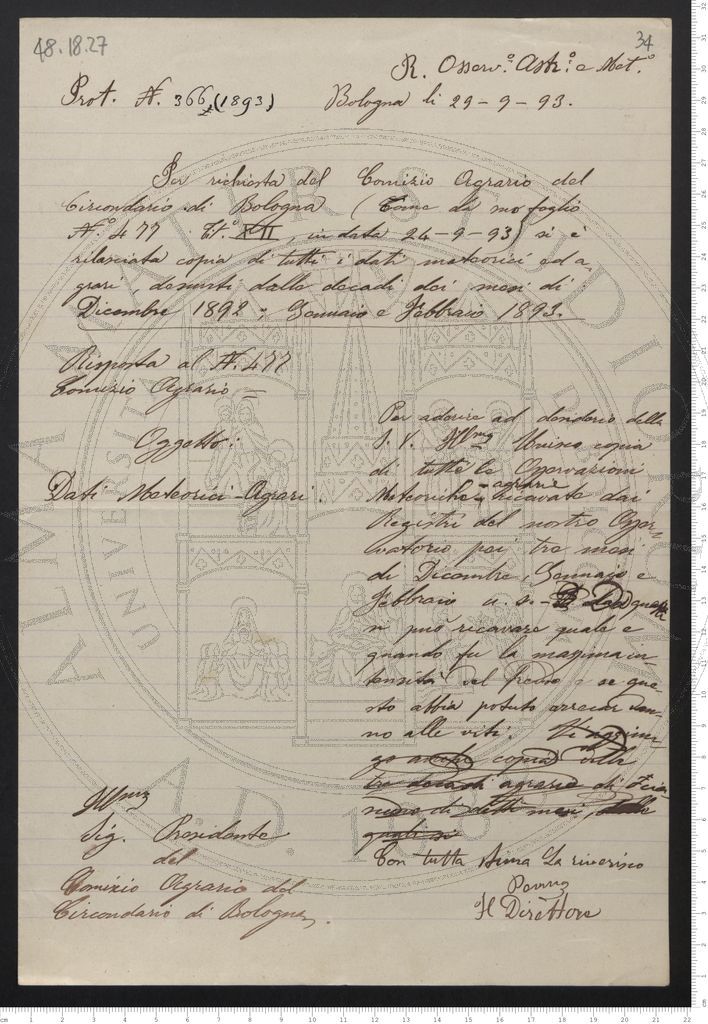 48.18.27
34
R. Osserv.º Astr.º e Met.º
Prot. N. 366 (1893) Bologna li 29-9-93.
Per richiesta del Comizio Agrario del
Circondario di Bologna (Come di suo foglio
N.º 477 Tit.º XII, in data 24-9-93) si è
rilasciata copia di tutti i dati meteorici ed a-
grari desunti dalle decadi dei mesi di
Dicembre 1892; Gennaio e Febbraio 1893.
Risposta al N. 477
Comizio Agrario =
Oggetto:
Dati Meteorici-Agrari.
Per aderire ad desiderio della
S. V. Illma Unisco copia
di tutte le Osservazioni
Meteoriche-agrarie ricavate dai
Registri del nostro Osser-
vatorio pei tre mesi
di Dicembre, Gennaio e
Febbraio u. s. - Da questi
si può ricavare quale e
quando fu la massima in-
tensità del freddo e se que-
sto abbia potuto arrecar dan-
no alle viti. Vi aggiun-
go anche copia delle
tre decadi agrarie di
detti mesi, dalle
quali si
Con tutta stima La riverisco
Il Direttore
Illmo
Sig. Presidente
del
Comizio Agrario del
Circondario di Bologna.
ALMA MATER STUDIORUM
UNIVERSITÀ
A.D. 1088
cm 1 2 3 4 5 6 7 8 9 10 11 12 13 14 15 16 17 18 19 20 21 22